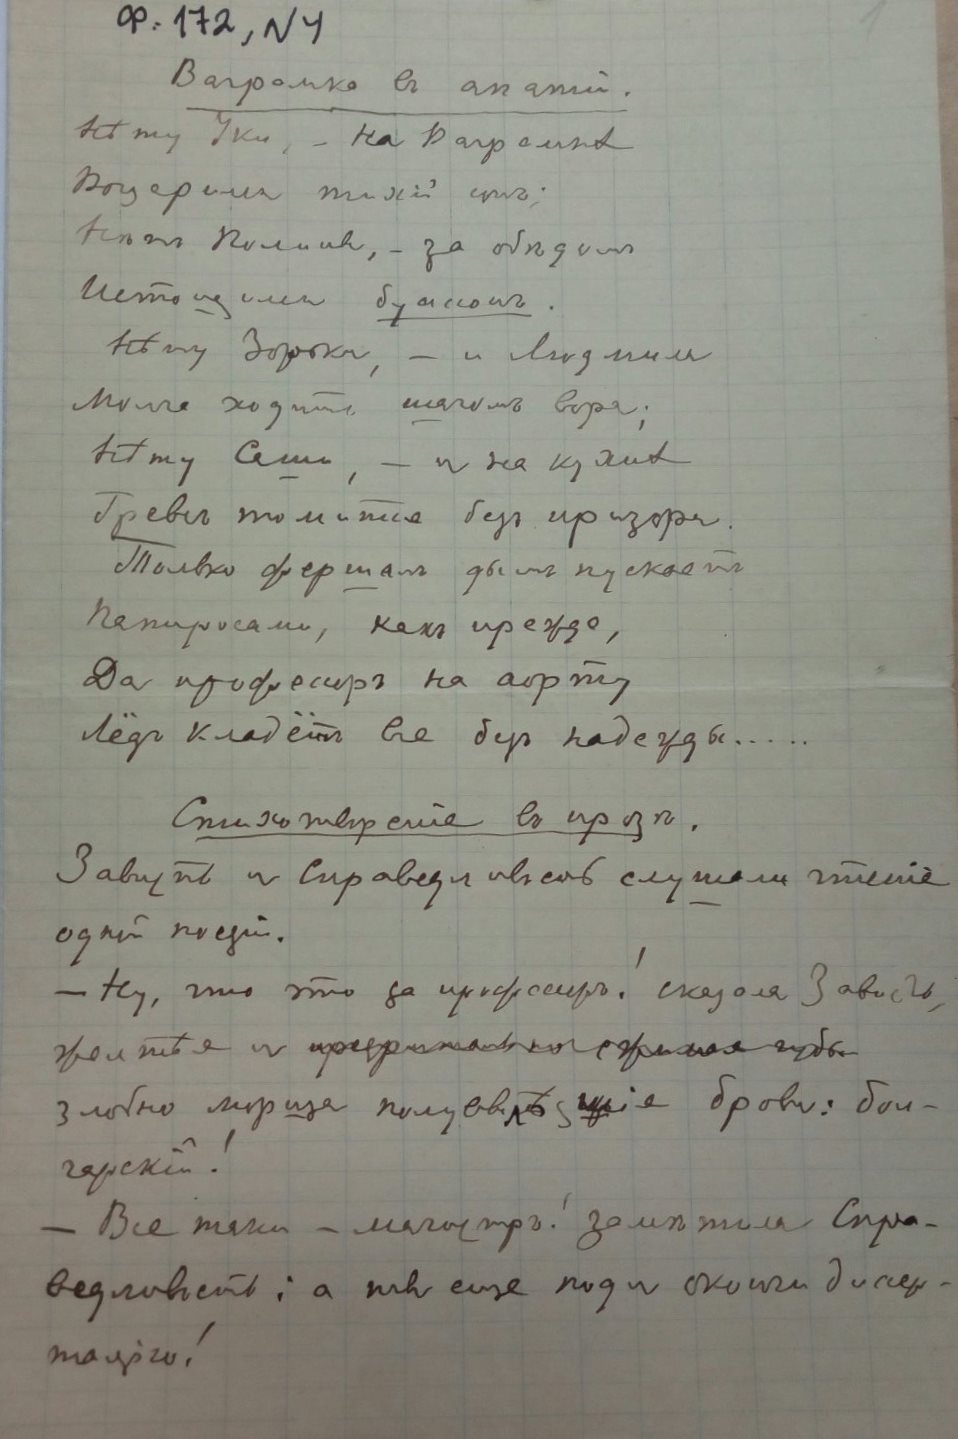 Ф. 172, N 4
1
Ваграмка въ апатіи.
Нѣту Уки, – на Ваграмкѣ
Воцарился тихій сонъ;
Нѣтъ Полины, – за обѣдомъ
Истощился бульонъ.
Нѣту Зорьки, – и Людмила
Молча ходитъ шагомъ вора;
Нѣту Саши, – и на кухнѣ
Гревсъ томится безъ призора.
Только фершалъ дымъ пускаетъ
Папиросами, какъ прежде,
Да профессоръ на аорту
Лёдъ кладётъ все безъ надежды.....
Стихотвореніе въ прозѣ.
Зависть и Справедливость слушали чтеніе
одной поэзіи.
– Ну, что это за профессоръ! сказала Зависть,
желтѣя и презрительно сжимая губы
злобно морща полуоблѣзшія брови: бол-
гарскій!
– Все таки – магистръ! замѣтила Спра-
ведливость; а ты еще поди окончи дисер-
тацію!